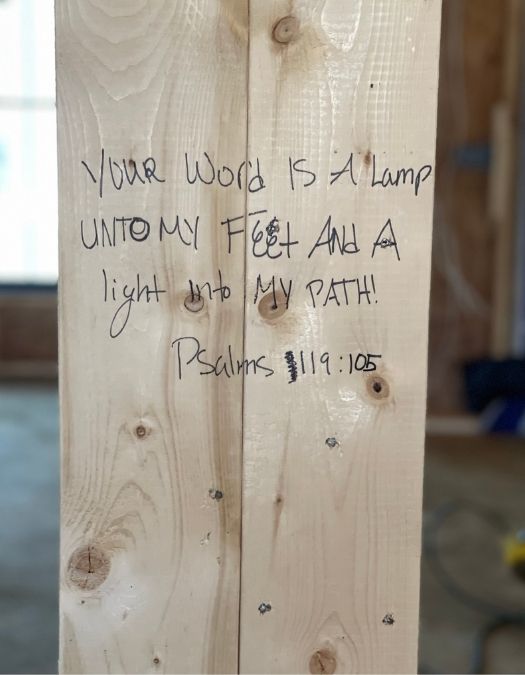 YOUR Word IS A Lamp
UNTO MY Feet And A
light Into MY PATH!
Psalms 119:105